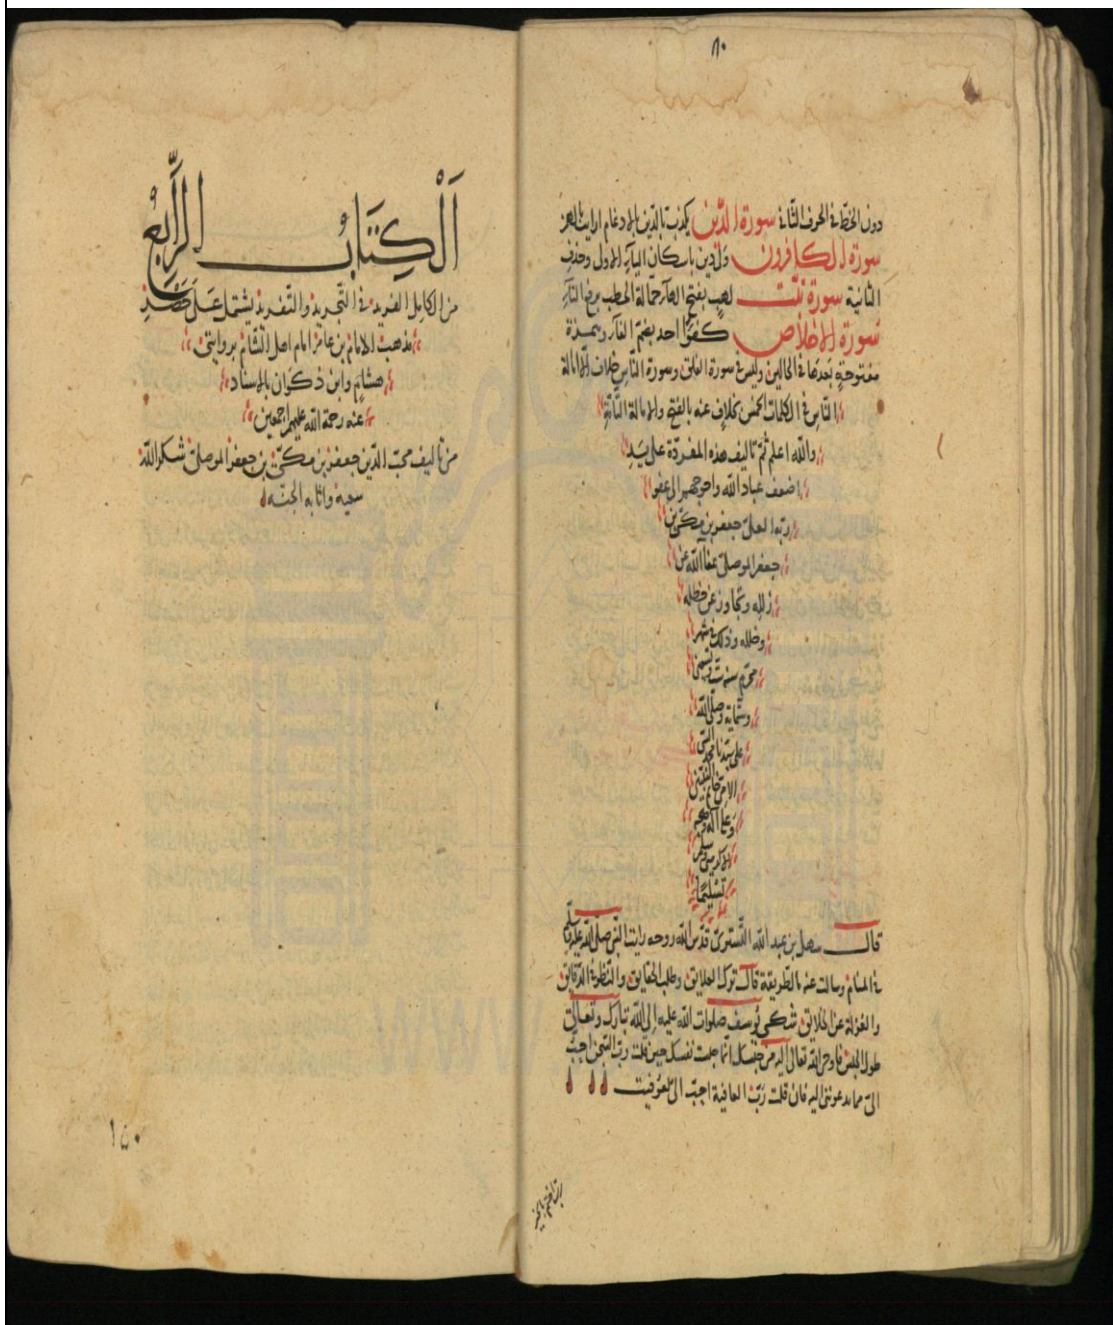 ٨٠
دون الخط في الحرف الثاني سورة الدين يكذب بالدين بالادغام ارايت بالهمز
سورة الكافرون ولي دين باسكان الياء الاول وحذف
الثانية سورة تبت لهب بفتح الهاء حمالة الحطب برفع التاء
سورة الاخلاص كفؤا احد بضم الفاء وهمزة
مفتوحة بعدها في الحالين وليس في سورة الفلق وسورة الناس خلاف الا امالة
الناس في الكلمات الخمس بخلاف عنه بالفتح والامالة التامة
والله اعلم تم تاليف هذه المفردة على يد
اضعف عباد الله واحوجهم الى عفو
ربه العلي جعفر بن مكي بن
جعفر الموصلي عفا الله عن
زلله وتجاوز عن خطئه
وخلله وذلك في شهر
محرم سنة ست
وستماية وصلى الله
على سيدنا محمد النبي
الامي
وعلى اله
وسلم
تسليما
قال سهل بن عبد الله التستري قدس الله روحه رايت النبي صلى الله عليه وسلم
في المنام وسالت عنه بالطريقة قال ترك العلايق وطلب الحقايق والنظر في الدقايق
والعزلة عن الخلايق شكى يوسف صلوات الله عليه الى الله تبارك وتعالى
طول الحبس فاوحى الله تعالى اليه من حبسك انما حبست نفسك حين قلت رب السجن احب
الي مما يدعونني اليه فان قلت رب العافية احب الي لعوفيت
الكتاب الرابع
من الكامل الفريد في التجريد والتفريد يشتمل على
مذهب الامام بن عامر امام اهل الشام بروايتي
هشام وابن ذكوان بالاسناد
عنه رحمة الله عليهم اجمعين
من تاليف محب الدين جعفر بن مكي بن جعفر الموصلي شكر الله
سعيه واثابه الجنة